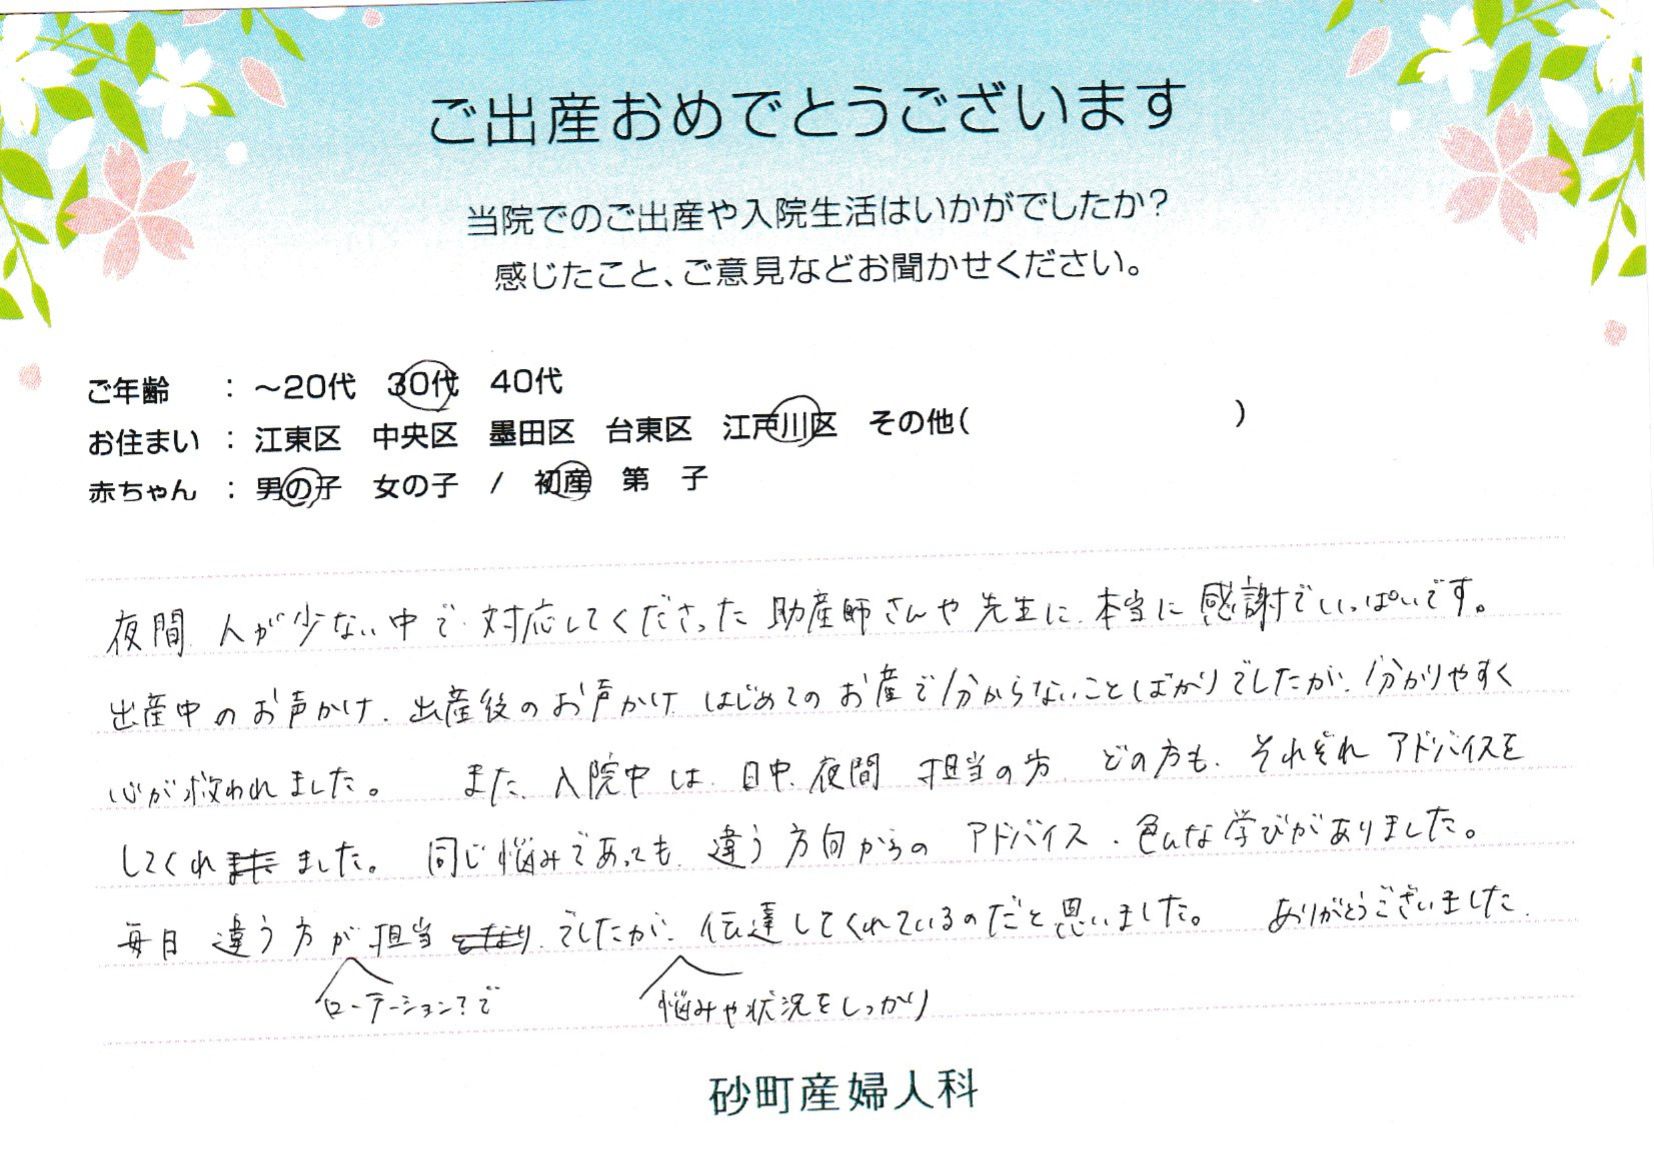 ご出産おめでとうございます
当院でのご出産や入院生活はいかがでしたか？
感じたこと、ご意見などお聞かせください。
ご年齢 ： ～20代 30代 40代
お住まい ： 江東区 中央区 墨田区 台東区 江戸川区 その他（ ）
赤ちゃん ： 男の子 女の子 / 初産 第 子
夜間、人が少ない中で対応してくださった助産師さんや先生に、本当に感謝でいっぱいです。
出産中のお声かけ、出産後のお声かけ、はじめてのお産で分からないことばかりでしたが、分かりやすく
心が救われました。 また、入院中は、日中、夜間 担当の方、どの方も、それぞれアドバイスを
してくれました。 同じ悩みであっても、違う方向からの アドバイス、色んな学びがありました。
毎日 違う方が担当 でしたが、伝達してくれているのだと思いました。 ありがとうございました。
ローテーション？で 悩みや状況をしっかり
砂町産婦人科